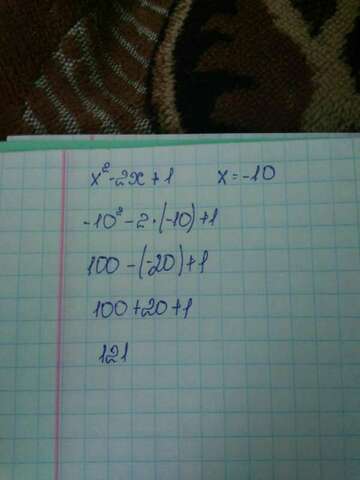 x²-2x+1 x=-10
-10²-2·(-10)+1
100-(-20)+1
100+20+1
121